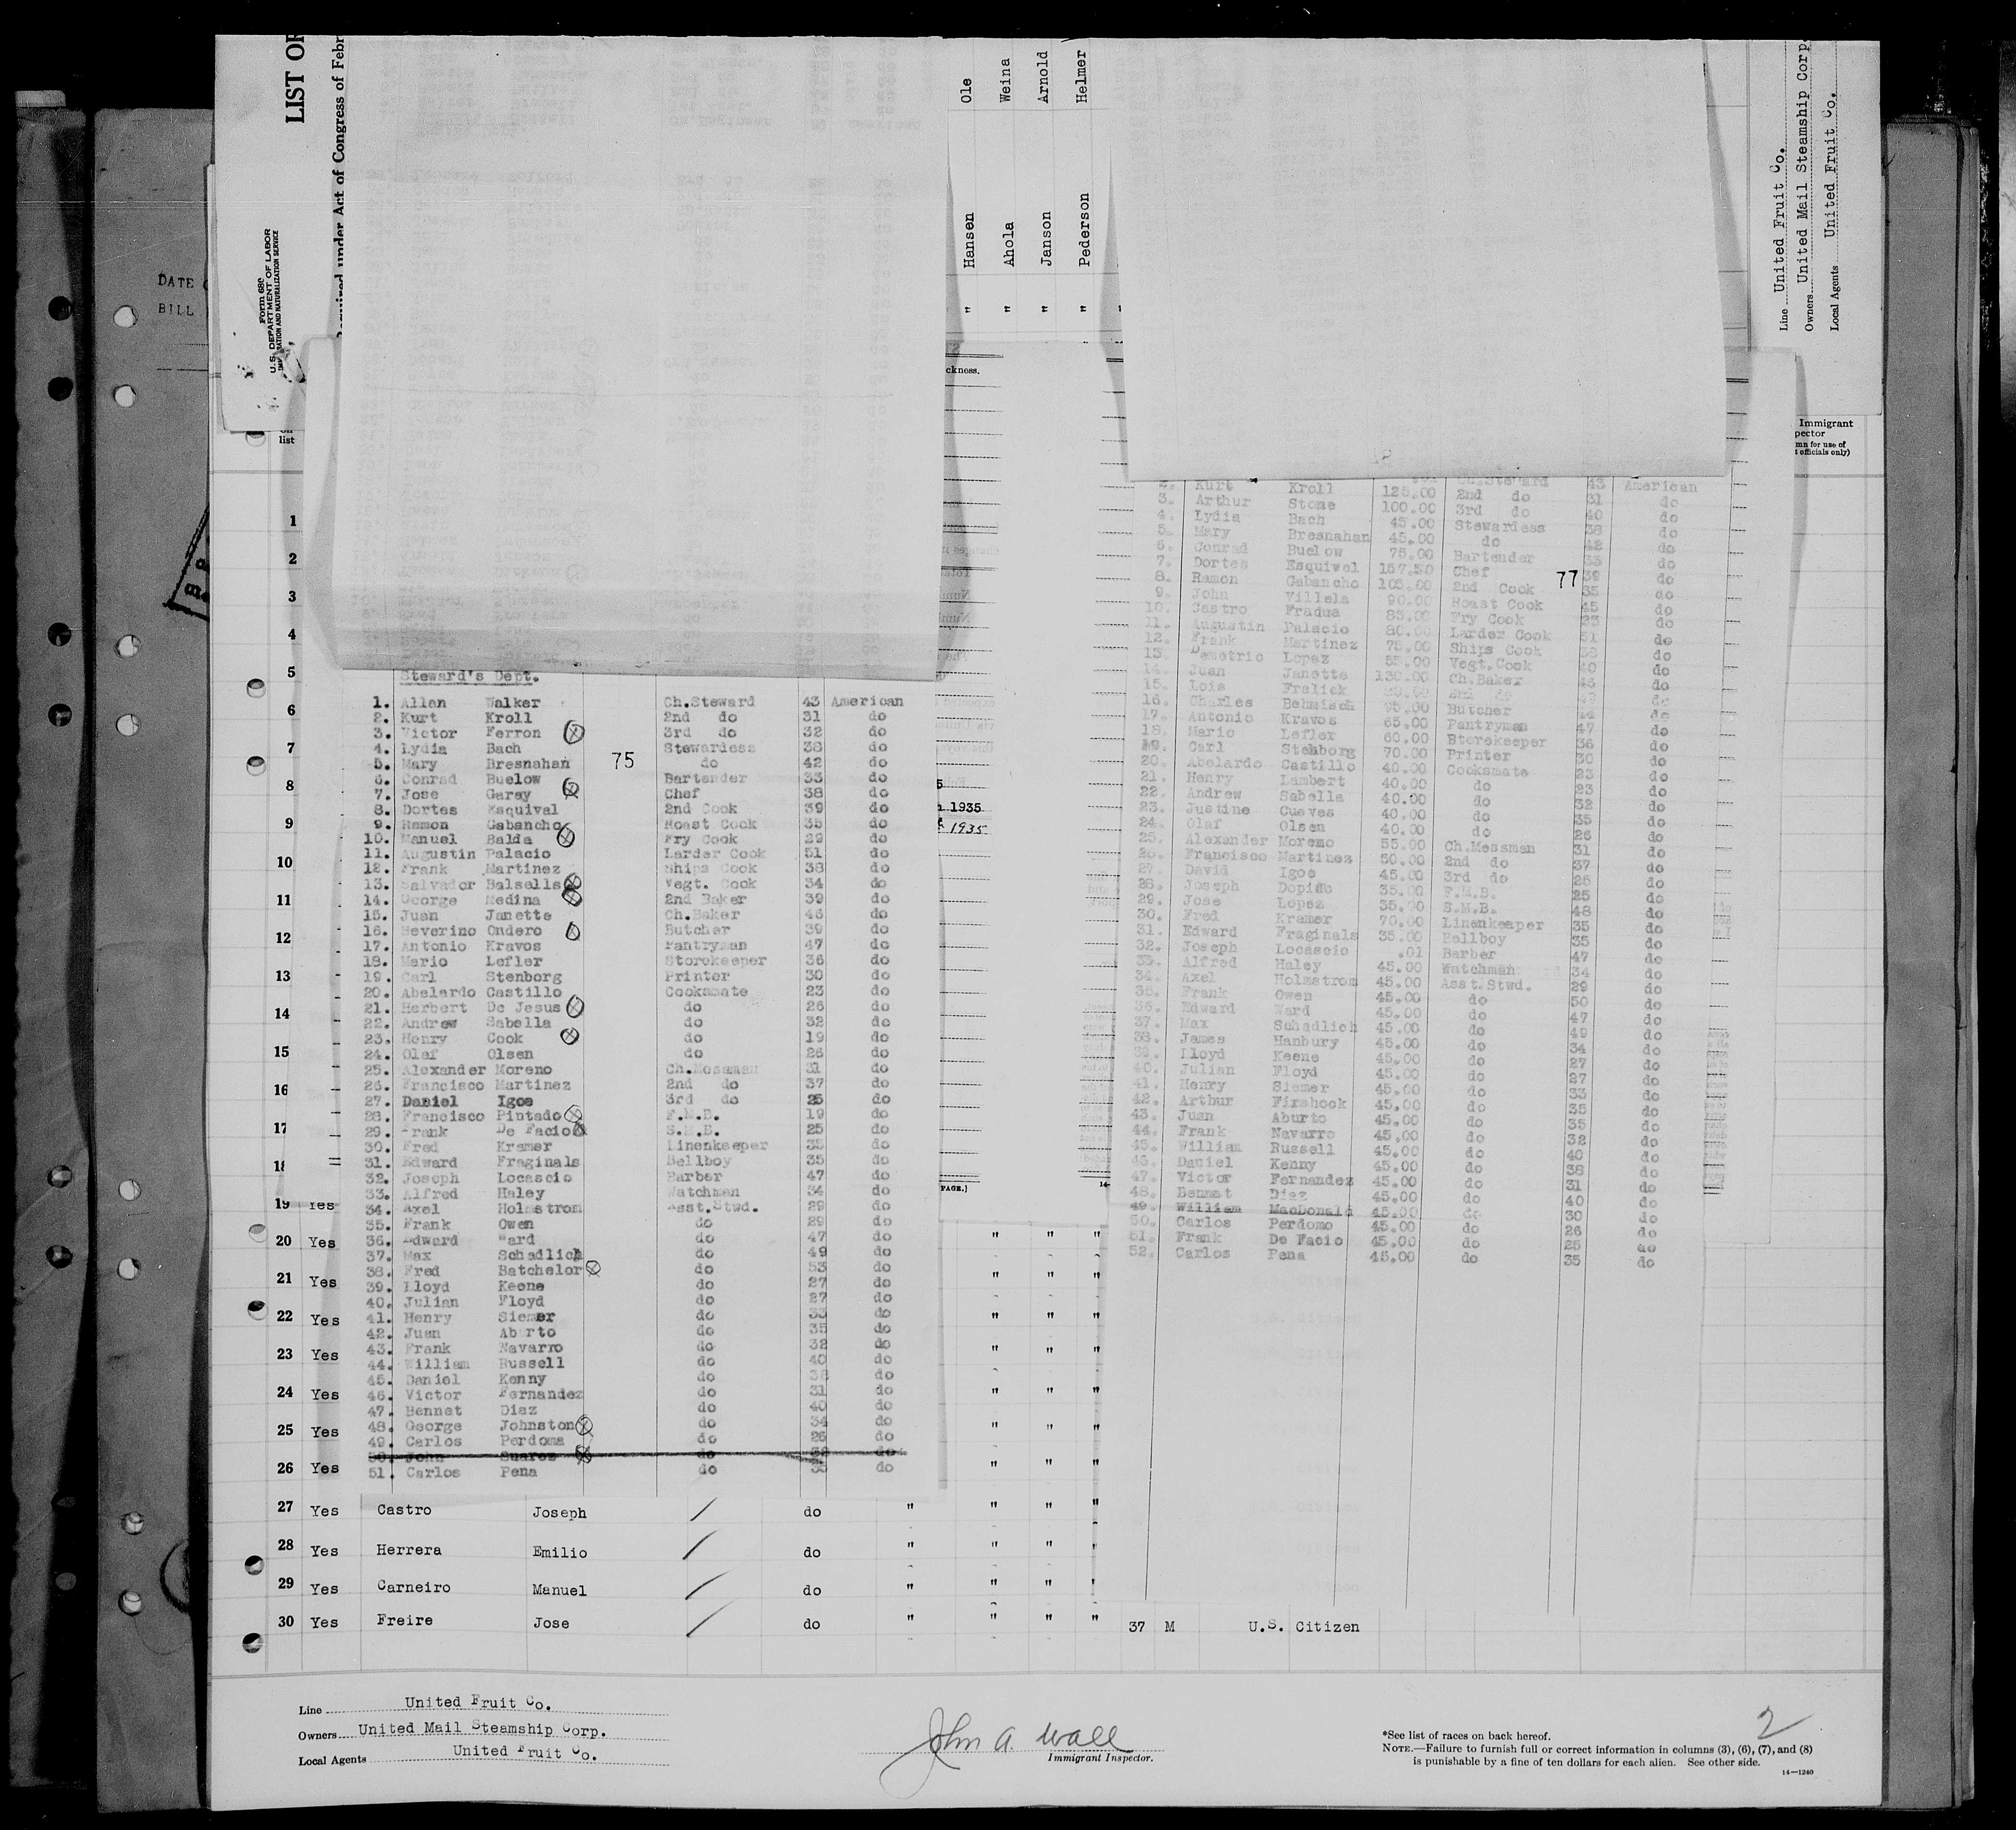 LIST OF
Required under Act of Congress of Febr
Form 680
U. S. DEPARTMENT OF LABOR
IMMIGRATION AND NATURALIZATION SERVICE
DATE
BILL
" Hansen Ole
" Ahola Weina
" Janson Arnold
" Pederson Helmer
Line United Fruit Co.
Owners United Mail Steamship Corp.
Local Agents United Fruit Co.
ckness.
list
Immigrant
pector
mn for use of
officials only)
Steward's Dept.
1. Allan Walker Ch.Steward 43 American
2. Kurt Kroll 2nd do 31 do
3. Victor Ferron 3rd do 32 do
4. Lydia Bach Stewardess 38 do
75
5. Mary Bresnahan do 42 do
6. Conrad Buelow Bartender 33 do
7. Jose Garay Chef 38 do
8. Dortes Esquival 2nd Cook 39 do
9. Ramon Gabancho Roast Cook 35 do
10. Manuel Balda Fry Cook 29 do
11. Augustin Palacio Larder Cook 51 do
12. Frank Martinez Ships Cook 38 do
13. Salvador Balsells Vegt. Cook 34 do
14. George Medina 2nd Baker 39 do
15. Juan Janette Ch.Baker 46 do
16. Severino Ondero Butcher 39 do
17. Antonio Kravos Pantryman 47 do
18. Mario Lefler Storekeeper 36 do
19. Carl Stenborg Printer 30 do
20. Abelardo Castillo Cooksmate 23 do
21. Herbert De Jesus do 26 do
22. Andrew Sabella do 32 do
23. Henry Cook do 19 do
24. Olaf Olsen do 26 do
25. Alexander Moreno Ch.Messman 31 do
26. Francisco Martinez 2nd do 37 do
27. Daniel Igoe 3rd do 25 do
28. Francisco Pintado F.M.B. 19 do
29. Frank De Facio S.M.B. 25 do
30. Fred Kramer Linenkeeper 35 do
31. Edward Fraginals Bellboy 35 do
32. Joseph Locascio Barber 47 do
33. Alfred Haley Watchman 34 do
34. Axel Holmstrom Asst.Stwd. 29 do
35. Frank Owen do 29 do
36. Edward Ward do 47 do
37. Max Schadlich do 49 do
38. Fred Batchelor do 53 do
39. Lloyd Keene do 27 do
40. Julian Floyd do 27 do
41. Henry Siemer do 33 do
42. Juan Aburto do 35 do
43. Frank Navarro do 32 do
44. William Russell do 40 do
45. Daniel Kenny do 38 do
46. Victor Fernandez do 31 do
47. Bennet Diaz do 40 do
48. George Johnston do 34 do
49. Carlos Perdoma do 26 do
50. John Suarez do 38 do
51. Carlos Pena do 35 do
1935
1935
PAGE.]
2. Kurt Kroll 125.00 Ch.Steward 43 American
3. Arthur Stone 100.00 2nd do 31 do
4. Lydia Bach 45.00 3rd do 40 do
5. Mary Bresnahan 45.00 Stewardess 38 do
6. Conrad Buelow 75.00 do 42 do
7. Dortes Esquivel 157.50 Bartender 33 do
8. Ramon Gabancho 105.00 Chef 39 do
77
9. John Villela 90.00 2nd Cook 35 do
10. Castro Fradua 85.00 Roast Cook 45 do
11. Augustin Palacio 80.00 Fry Cook 23 do
12. Frank Martinez 75.00 Larder Cook 51 do
13. Demetric Lopez 55.00 Ships Cook 38 do
14. Juan Janette 130.00 Vegt.Cook 40 do
15. Lois Fralick Ch.Baker 46 do
16. Charles Behmisch 95.00 2nd do
17. Antonio Kravos 65.00 Butcher 44 do
18. Mario Lefler 60.00 Pantryman 47 do
19. Carl Stenborg 70.00 Storekeeper 36 do
20. Abelardo Castillo 40.00 Printer 30 do
21. Henry Lambert 40.00 Cooksmate 23 do
22. Andrew Sabella 40.00 do 23 do
23. Justine Cueves 40.00 do 32 do
24. Olaf Olsen 40.00 do 35 do
25. Alexander Moreno 55.00 do 26 do
26. Francisco Martinez 50.00 Ch.Messman 31 do
27. David Igoe 45.00 2nd do 37 do
28. Joseph Dopiño 35.00 3rd do 25 do
29. Jose Lopez 35.00 F.M.B. 25 do
30. Fred Kramer 70.00 S.M.B. 48 do
31. Edward Fraginals 35.00 Linenkeeper 35 do
32. Joseph Locascio .01 Bellboy 35 do
33. Alfred Haley 45.00 Barber 47 do
34. Axel Holmstrom 45.00 Watchman 34 do
35. Frank Owen 45.00 Asst.Stwd. 29 do
36. Edward Ward 45.00 do 50 do
37. Max Schadlich 45.00 do 47 do
38. James Hanbury 45.00 do 49 do
39. Lloyd Keene 45.00 do 34 do
40. Julian Floyd 45.00 do 27 do
41. Henry Siemer 45.00 do 27 do
42. Arthur Firshock 45.00 do 33 do
43. Juan Aburto 45.00 do 35 do
44. Frank Navarro 45.00 do 35 do
45. William Russell 45.00 do 32 do
46. Daniel Kenny 45.00 do 40 do
47. Victor Fernandez 45.00 do 38 do
48. Bennet Diaz 45.00 do 31 do
49. William MacDonald 45.00 do 40 do
50. Carlos Perdomo 45.00 do 30 do
51. Frank De Facio 45.00 do 26 do
52. Carlos Pena 45.00 do 25 do
do 35 do
1
2
3
4
5
6
7
8
9
10
11
12
13
14
15
16
17
18
19 Yes
20 Yes " " "
21 Yes " " "
22 Yes " " "
23 Yes " " "
24 Yes " " "
25 Yes " " "
26 Yes " " "
27 Yes Castro Joseph / do " " " "
28 Yes Herrera Emilio / do " " " "
29 Yes Carneiro Manuel / do " " " "
30 Yes Freire Jose / do " " " " 37 M U.S. Citizen
Line United Fruit Co.
Owners United Mail Steamship Corp.
Local Agents United Fruit Co.
John A. Wall
Immigrant Inspector.
2
*See list of races on back hereof.
NOTE.—Failure to furnish full or correct information in columns (3), (6), (7), and (8)
is punishable by a fine of ten dollars for each alien. See other side.
14—1240